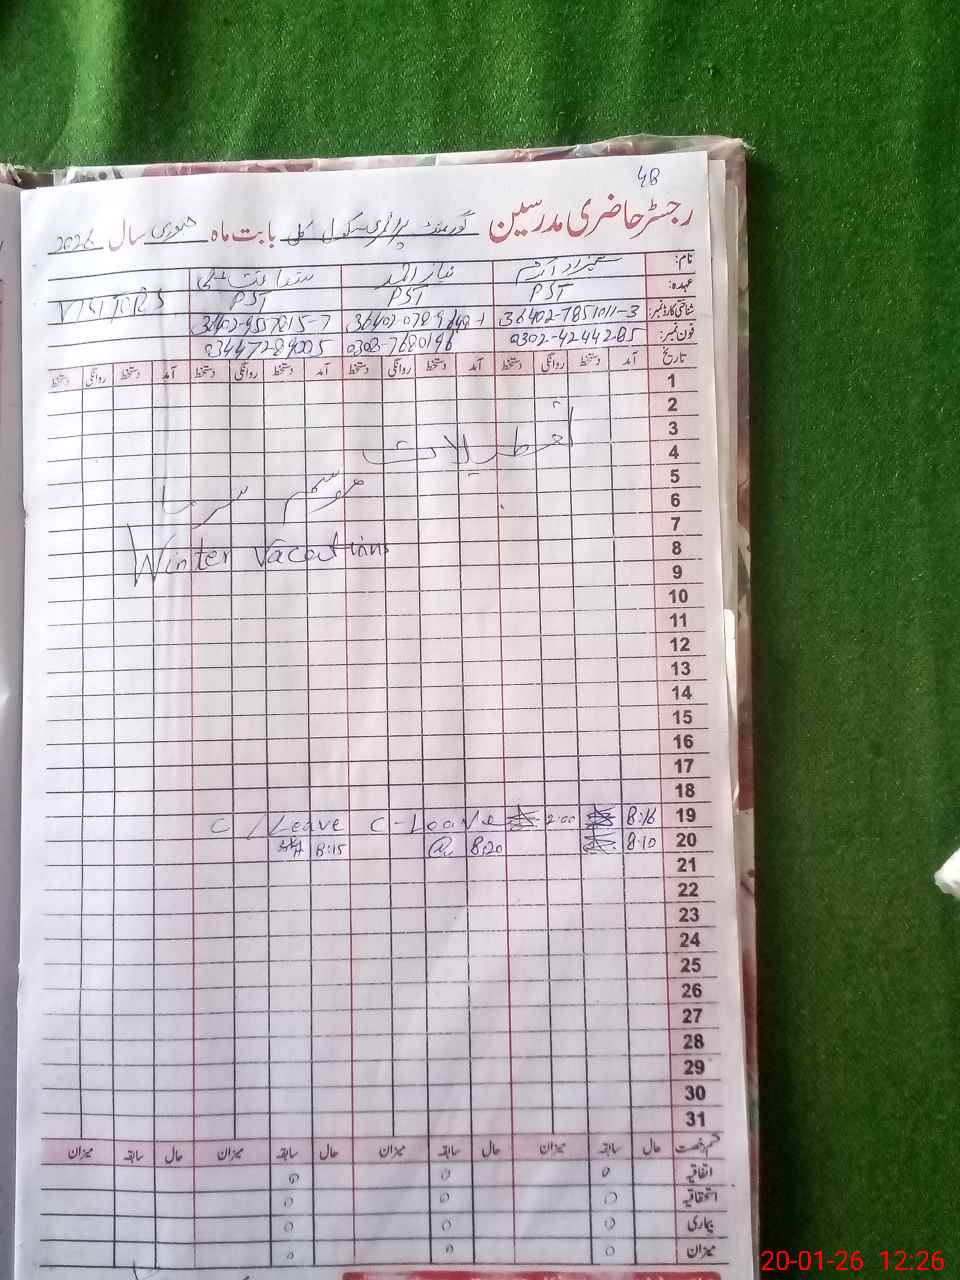 48
رجسٹر حاضری مدرسین گورنمنٹ پرائمری سکول بابت ماہ جنوری سال 2026
نام:
عہدہ: PST PST PST VISITORS
شناختی کارڈ نمبر: 36402-7851011-3
فون نمبر: 0302-4244285 0308-7680196 03447289005
تاریخ آمد دستخط روانگی دستخط آمد دستخط روانگی دستخط آمد دستخط روانگی دستخط آمد دستخط روانگی دستخط
1
2
3
تعطیلات
4
5
موسم سرما
6
7
Winter Vacations
8
9
10
11
12
13
14
15
16
17
18
19 8:16 2:00 C - Leave C / Leave
20 8:10 8:20 8:15
21
22
23
24
25
26
27
28
29
30
31
قسم رخصت حال سابقہ میزان حال سابقہ میزان حال سابقہ میزان حال سابقہ میزان
اتفاقیہ 0 0 0
استحقاقیہ 0 0 0
بیماری 0 0 0
میزان 0 0 0
20-01-26 12:26